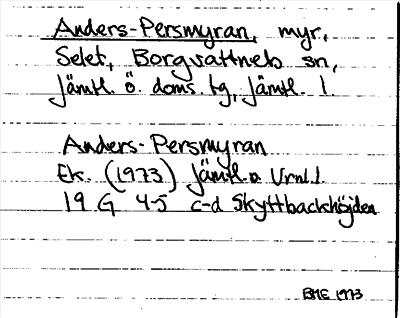 Anders-Persmyran, myr,
Selet, Borgvattnets sn,
Jämtl. ö. doms. tg, Jämtl. l.
Anders-Persmyran
Ek. (1973) Jämtl. o Vrnl. l.
19 G 4-5 c-d Skyttbackshöjden
BME 1973